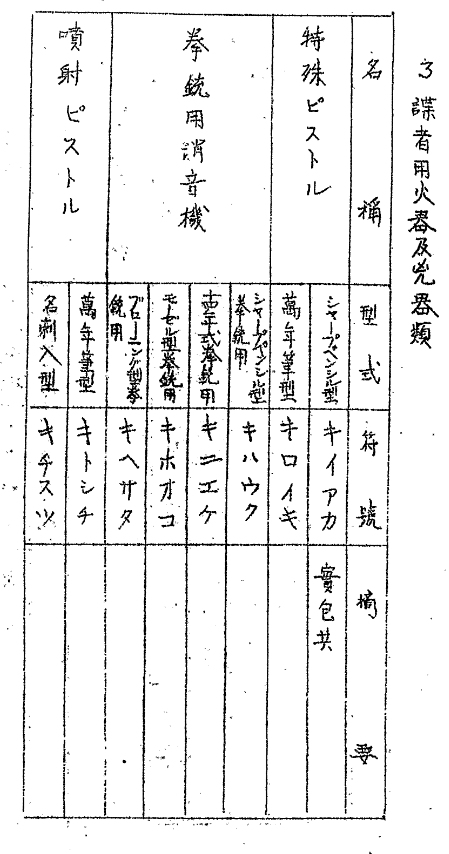 3 諜者用火器及兇器類
名稱
型式
符號
摘要
特殊ピストル
シャープペンシル型
キイアカ
實包共
萬年筆型
キロイキ
拳銃用消音機
シャープペンシル型拳銃用
キハウク
十四年式拳銃用
キニエケ
モーゼル型拳銃用
キホオコ
ブローニング型拳銃用
キヘサタ
噴射ピストル
萬年筆型
キトシチ
名刺入型
キチスツ